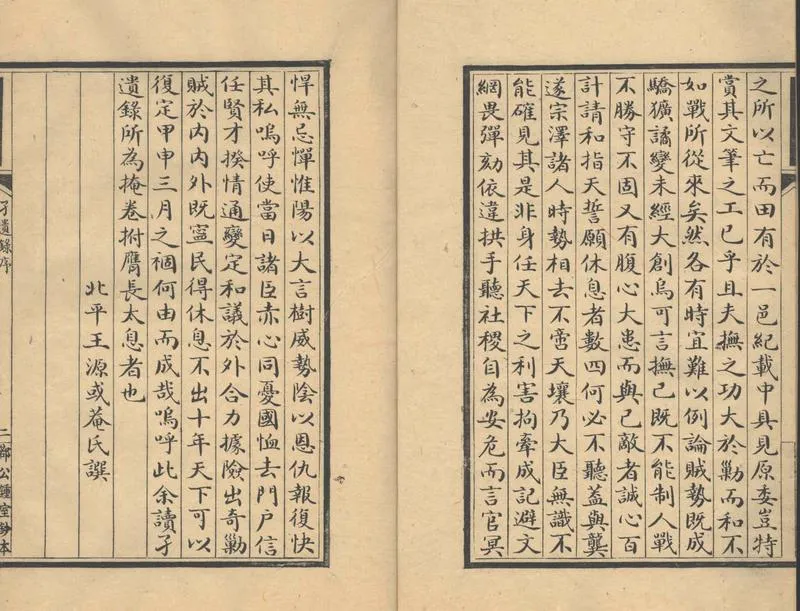 之所以亡而田有於一邑紀載中具見原委豈特
賞其文筆之工已乎且夫撫之功大於勦而和不
如戰所從來矣然各有時宜難以例論賊勢既成
驕獷譎變未經大創烏可言撫已既不能制人戰
不勝守不固又有腹心大患而與已敵者誠心百
計請和指天誓願休息者數四何必不聽蓋與龔
遂宗澤諸人時勢相去不啻天壤乃大臣無識不
能確見其是非身任天下之利害拘牽成記避文
網畏彈劾依違拱手聽社稷自為安危而言官冥
悍無忌憚惟陽以大言樹威勢陰以恩仇報復快
其私嗚呼使當日諸臣赤心同憂國恤去門戶信
任賢才揆情通變定和議於外合力據險出奇勦
賊於內內外既寧民得休息不出十年天下可以
復定甲申三月之禍何由而成哉嗚呼此余讀孑
遺錄所為掩卷拊膺長太息者也
北平王源或菴氏譔
孑遺錄序
二
鄰公鍾室鈔本